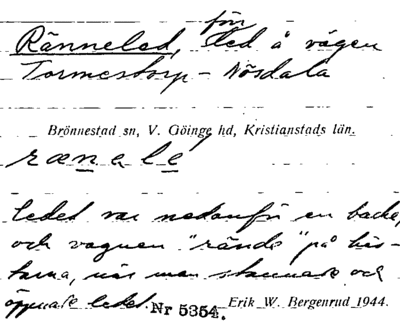 för
Ränneled, led å vägen
Tormestorp - Nösdala
Brönnestad sn, V. Göinge hd, Kristianstads län.
rænelé
Ledet var nedanför en backe,
och vagnen "rände" på häs-
tarna, när man stannade och
öppnade ledet.
Nr 5354. Erik W. Bergenrud 1944.